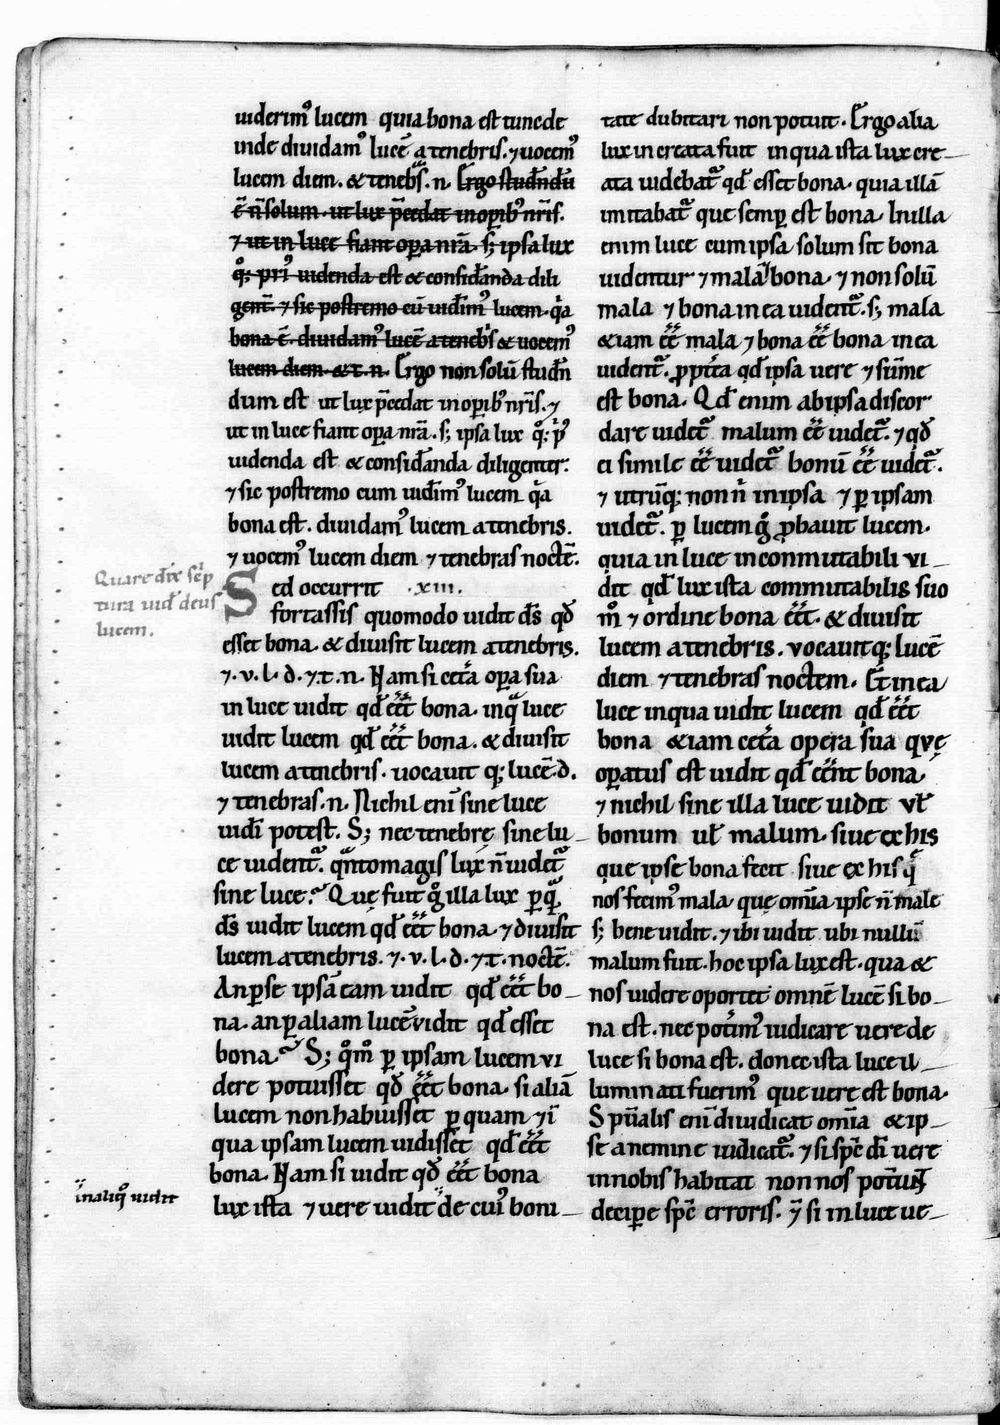 uiderim᷒ lucem quia bona est tunc de
inde diuidam᷒ lucē a tenebris. ⁊ uocem᷒
lucem diem. & tenebs̄. n. Ergo studendū
ē n̄ solum. ut lux p̄cedat in opib᷒ nr̄is.
⁊ ut in luce fiant opa nr̄a. s; ipsa lux
q̊; pri᷒ uidenda est & considanda dili
gent̄. ⁊ sic postremo cū uidim᷒ lucem. qa
bona ē. diuidam᷒ lucē a tenebs̄ & uocem᷒
lucem diem. & t. n. Ergo non solū studn̄
dum est ut lux p̄cedat in opib᷒ nr̄is. ⁊
ut in luce fiant opa nr̄a. s; ipsa lux q̊; p᷒
uidenda est & considanda diligenter.
⁊ sic postremo cum uidim᷒ lucem qa
bona est. diuidam᷒ lucem a tenebris.
⁊ uocem᷒ lucem diem ⁊ tenebras noctē.
Quare dix̄ scp
tura uid̄ deus
lucem.
Sed occurrit .xiii.
fortassis quomodo uidit ds̄ qđ
esset bona. & diuisit lucem a tenebris.
⁊. v. l. d. ⁊ t. n. Nam si cet̄a opa sua
in luce uidit qđ eēt bona. in q̄ luce
uidit lucem qđ eēt bona. & diuisit
lucem a tenebris. uocauit q; lucē. d.
⁊ tenebras. n. Nichil eni sine luce
uidi potest. S; nec tenebrę sine lu
ce uident᷑. qn̄to magis lux n̄ uidet᷑
sine luce? Quę fuit g̊ illa lux p quā
ds̄ uidit lucem qđ eēt bona. ⁊ diuisit
lucem a tenebris. ⁊. v. l. d. ⁊ t. noctē.
An p se ipsā eam uidit qđ eēt bo
na. an p aliam lucē vidit qđ esset
bona? S; q̊m̊ p ipsam lucem vi
dere potuisset qđ eēt bona. si aliā
lucem non habuisset p quam ⁊ ī
qua ipsam lucem uidisset qđ eēt
bona. Nam si uidit qđ eēt bona
in aliq̊ uidit
lux ista ⁊ uere uidit de cui᷒ boni
tate dubitari non potuit. Ergo alia
lux increata fuit in qua ista lux cre
ata uidebat᷑ qđ esset bona. quia illā
imitabat᷑ que semp est bona. In illa
enim luce cum ipsa solum sit bona
uidentur ⁊ mala bona. ⁊ non solū
mala ⁊ bona in ea uident᷑. s; mala
&iam eē mala ⁊ bona eē bona in ea
uident᷑. ppt̄ea qđ ipsa uere ⁊ sūme
est bona. Qđ enim ab ipsa discor
dare uidet᷑ malum eē uidet᷑. ⁊ qđ
ei simile eē uidet᷑ bonū eē uidet᷑.
⁊ utrūq; non n̄ in ipsa ⁊ p ipsam
uidet᷑. p lucem g̊ pbauit lucem.
quia in luce inconmutabili vi
dit qđ lux ista commutabilis suo
m̊ ⁊ ordine bona eēt. & diuisit
lucem a tenebris. vocauitq; lucē
diem ⁊ tenebras noctem. Et in ea
luce in qua uidit lucem qđ eēt
bona &iam cet̄a opera sua quę
opatus est uidit qđ eēnt bona.
⁊ nichil sine illa luce uidit vł
bonum uł malum. siue ex his
que ipse bona fecit siue ex his q̄
nos fecim᷒ mala. quę omīa ipse n̄ male
s; bene uidit. ⁊ ibi uidit ubi nullū
malum fuit. hoc ipsa lux est. qua &
nos uidere oportet omnē lucē si bo
na est. nec potim᷒ iudicare uere de
luce si bona est. donec ista luce il
luminati fuerim᷒ que uere est bona.
Spūalis eni diiudicat omīa & ip
se a nemine iudicat᷑. ⁊ si spc̄ di uere
in nobis habitat non nos potīus
decipe spc̄ erroris. ⁊ si in luce ue